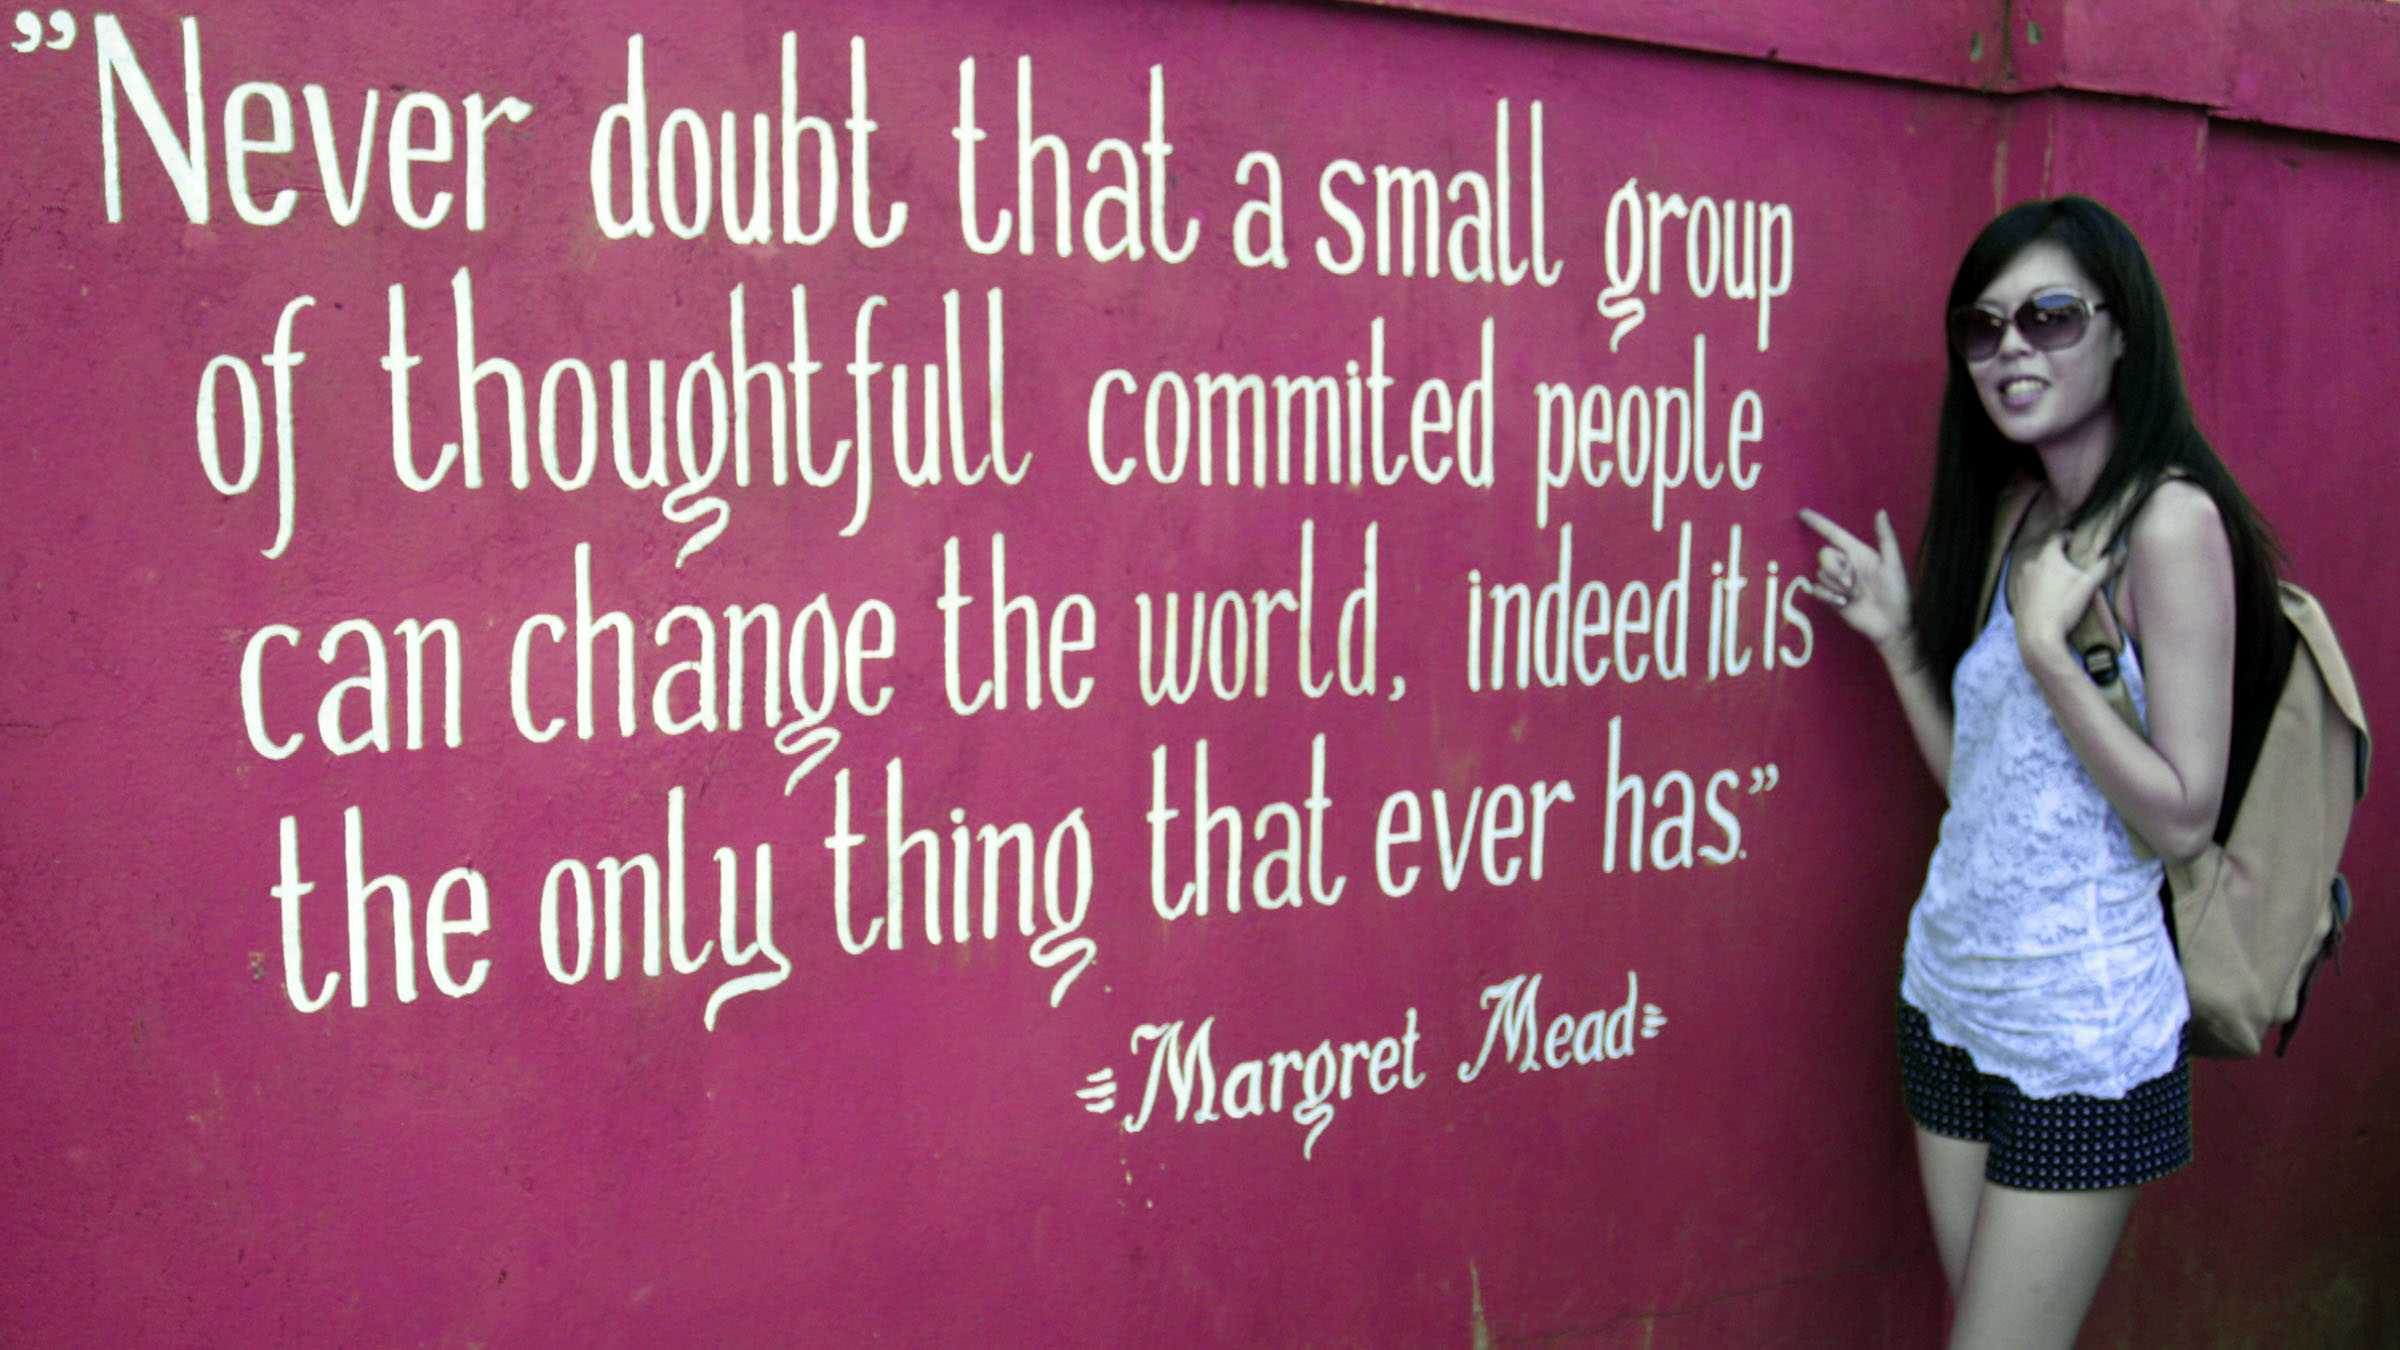 ”Never doubt that a small group
of thoughtfull commited people
can change the world, indeed it is
the only thing that ever has.”
Margret Mead